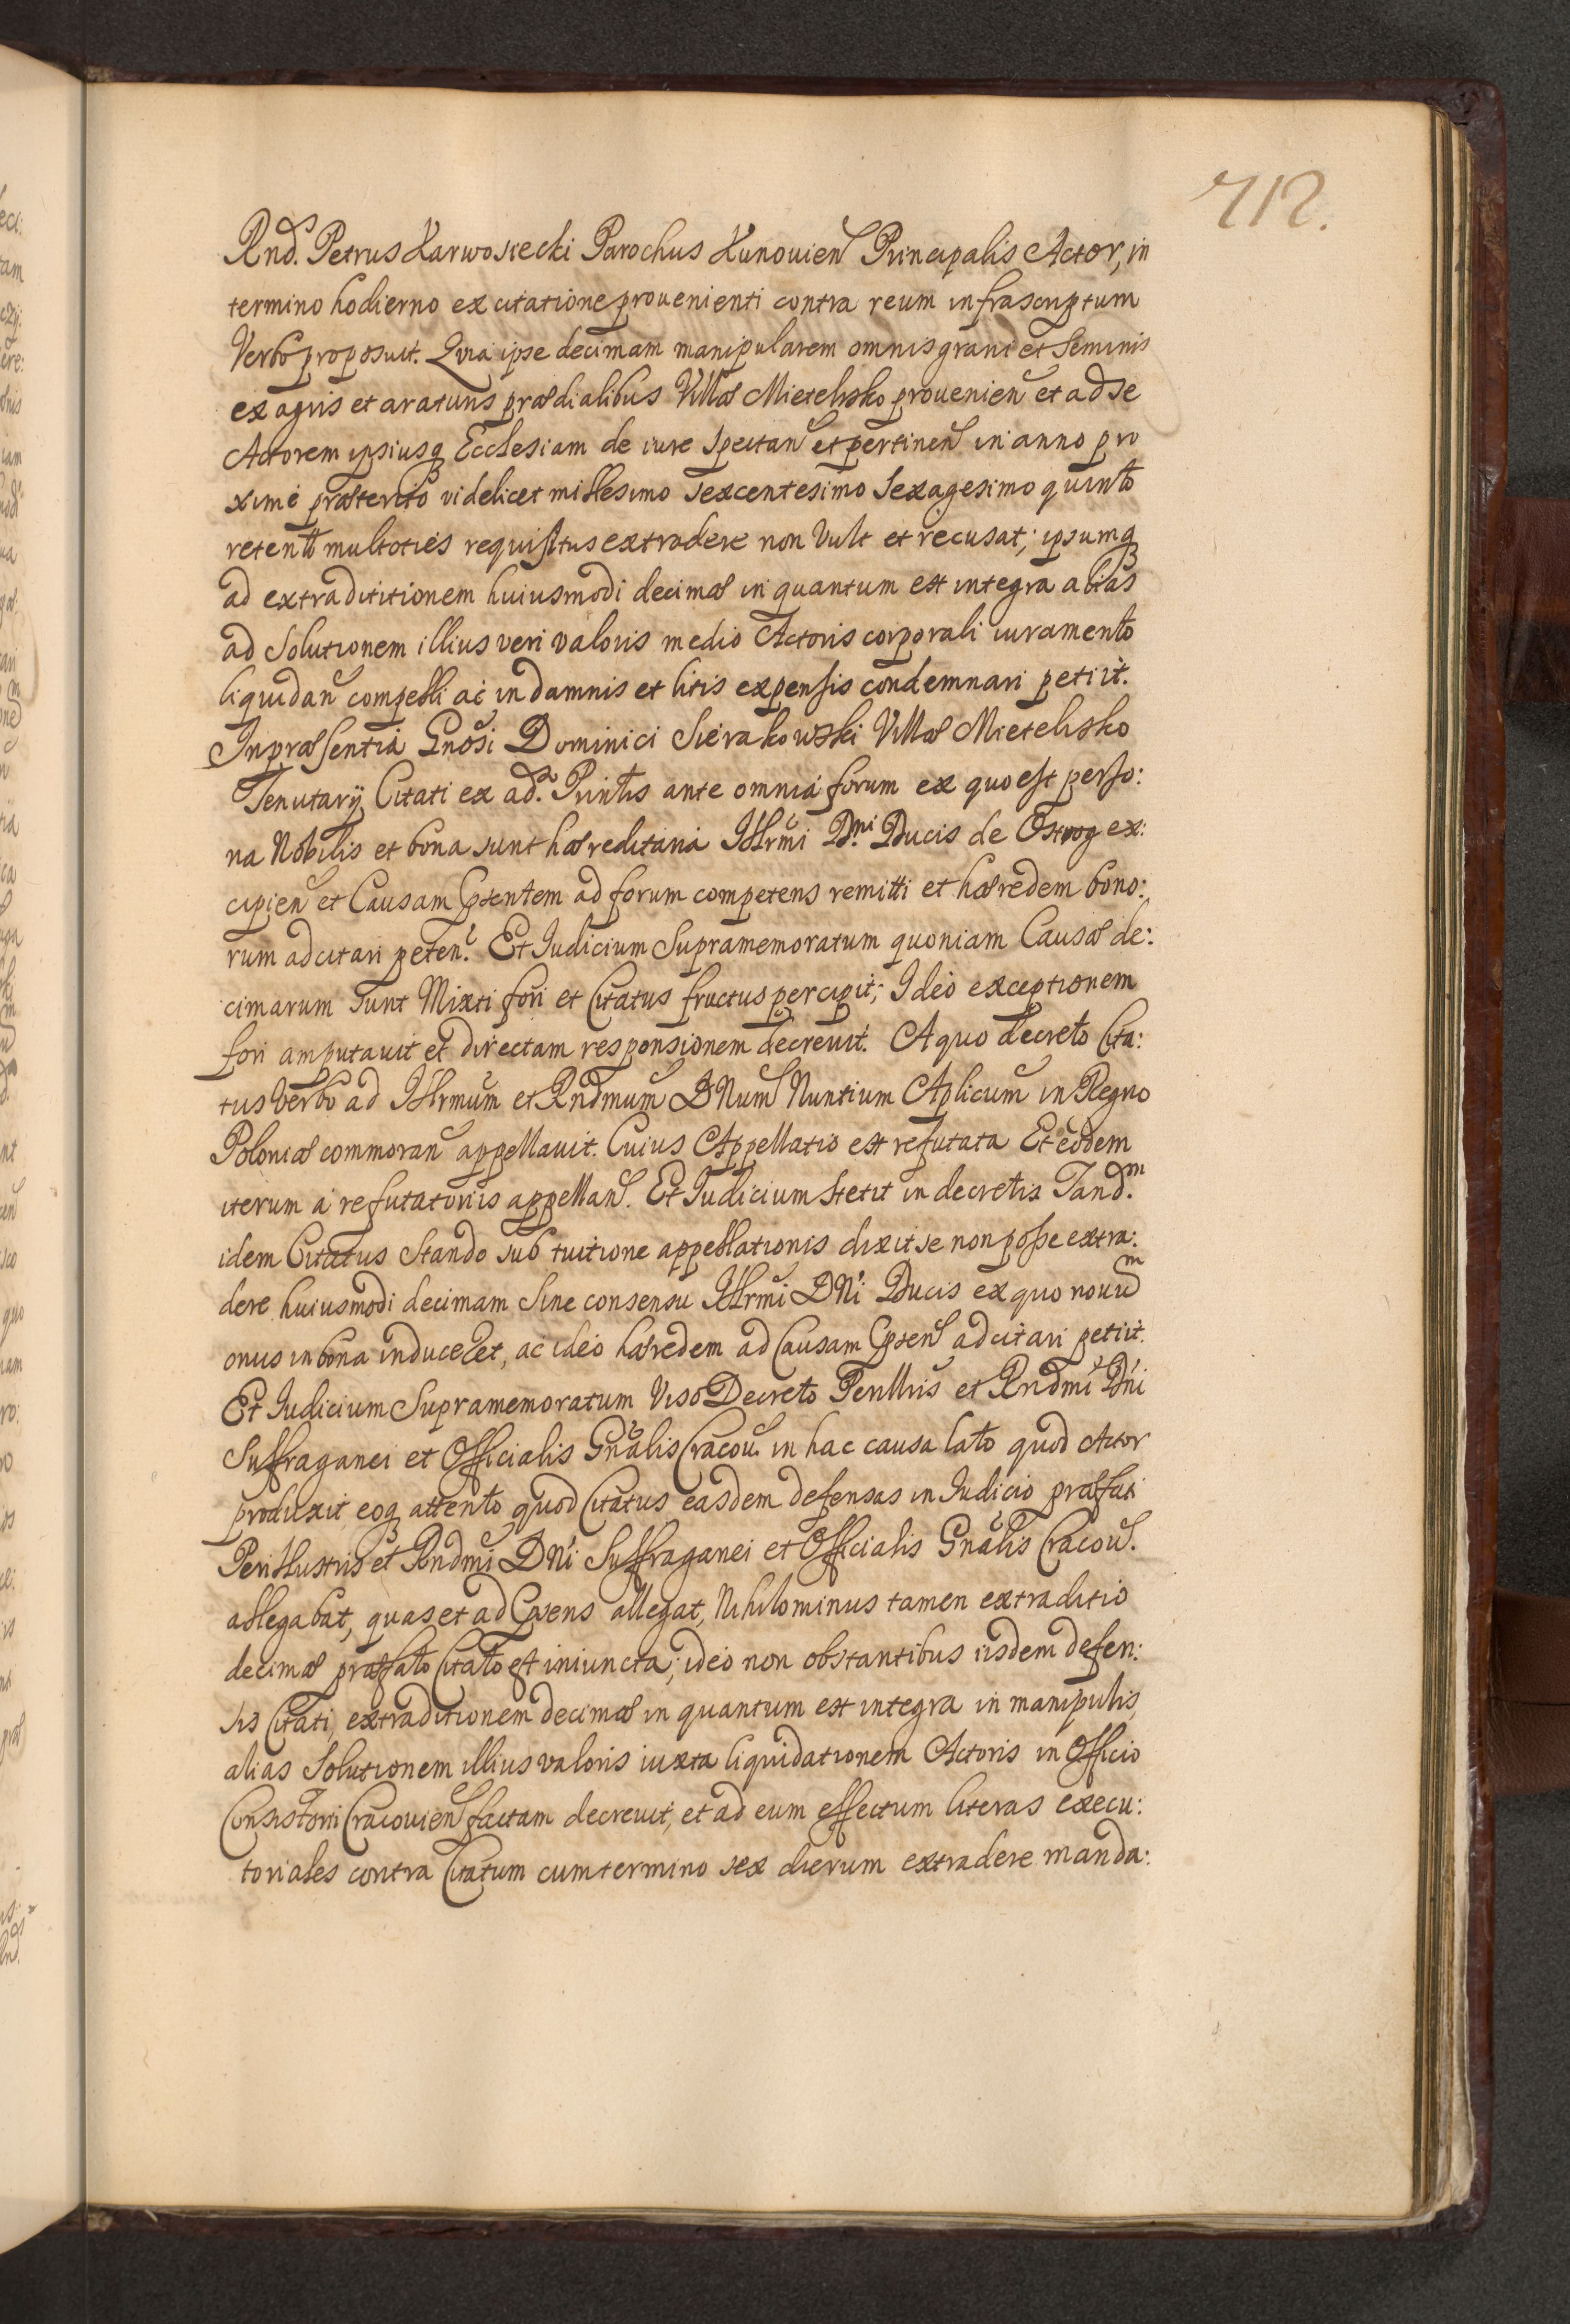 712.
Rnds. Petrus Karwosiecki Parochus Kunouien Principalis Actor, in
termino hodierno ex citatione prouenienti contra reum infrascriptum
Verbo proposuit. Quia ipse decimam manipularem omnis grani et Seminis
ex agris et araturis prædialibus Villæ Mietelisko prouenien et ad se
Actorem ipsiusq Ecclesiam de iure spectan et pertinen in anno pro
ximè præterito videlicet millesimo sexcentesimo sexagesimo quinto
retent multoties requisitus extradere non Vult et recusat; ipsumq
ad extradititionem huiusmodi decimæ in quantum est integra alias
ad Solutionem illius veri valoris medio Actoris corporali iuramento
liquidan compelli ac in damnis et litis expensis condemnari petiit.
In præsentia Gnosi Dominici Sierakowski Villæ Mietelisko
Tenutarij Citati ex ad.o Printis ante omnia forum ex quo est perso:
na Nobilis et bona sunt hæreditaria Illrmi D.ni Ducis de Ostrog ex:
cipien et Causam pntem ad forum competens remitti et hæredem bono:
rum adcitari peten. Et Iudicium Supramemoratum quoniam Causæ de:
cimarum sunt Mixti fori et Citatus fructus percipit; Ideò exceptionem
fori amputauit et directam responsionem decreuit. A quo decreto Cita:
tus Verbo ad Illrmum et Rndmum DNum Nuntium Aplicum in Regno
Poloniæ commoran appellauit. Cuius Appellatio est refutata Et eodem
iterum à refutatoriis appellan. Et Iudicium stetit in decretis Tand.m
idem Citatus Stando sub tuitione appellationis dixit se non posse extra:
dere huiusmodi decimam sine consensu Illrmi DNi Ducis ex quo nouum
onus in bona induceret, ac ideò hæredem ad Causam pnten adcitari petiit.
Et Iudicium Supramemoratum Viso Decreto Perillris et Rndmi Dni
Suffraganei et Officialis Gnalis Cracou. in hac causa lato quod Actor
produxit eoq attento quod Citatus easdem defensas in Iudicio præfati
Perillustris et Rndmi DNi Suffraganei et Officialis Gnalis Cracou.
allegabat, quas et ad pnsens allegat, Nihilominus tamen extraditio
decimæ præfato Citato est iniuncta; ideò non obstantibus iisdem defen:
sis Citati, extraditionem decimæ in quantum est integra in manipulis,
alias Solutionem illius valoris iuxta liquidationem Actoris in Officio
Consistorii Cracouien factam decreuit, et ad eum effectum literas execu:
toriales contra Citatum cum termino sex dierum extradere manda: